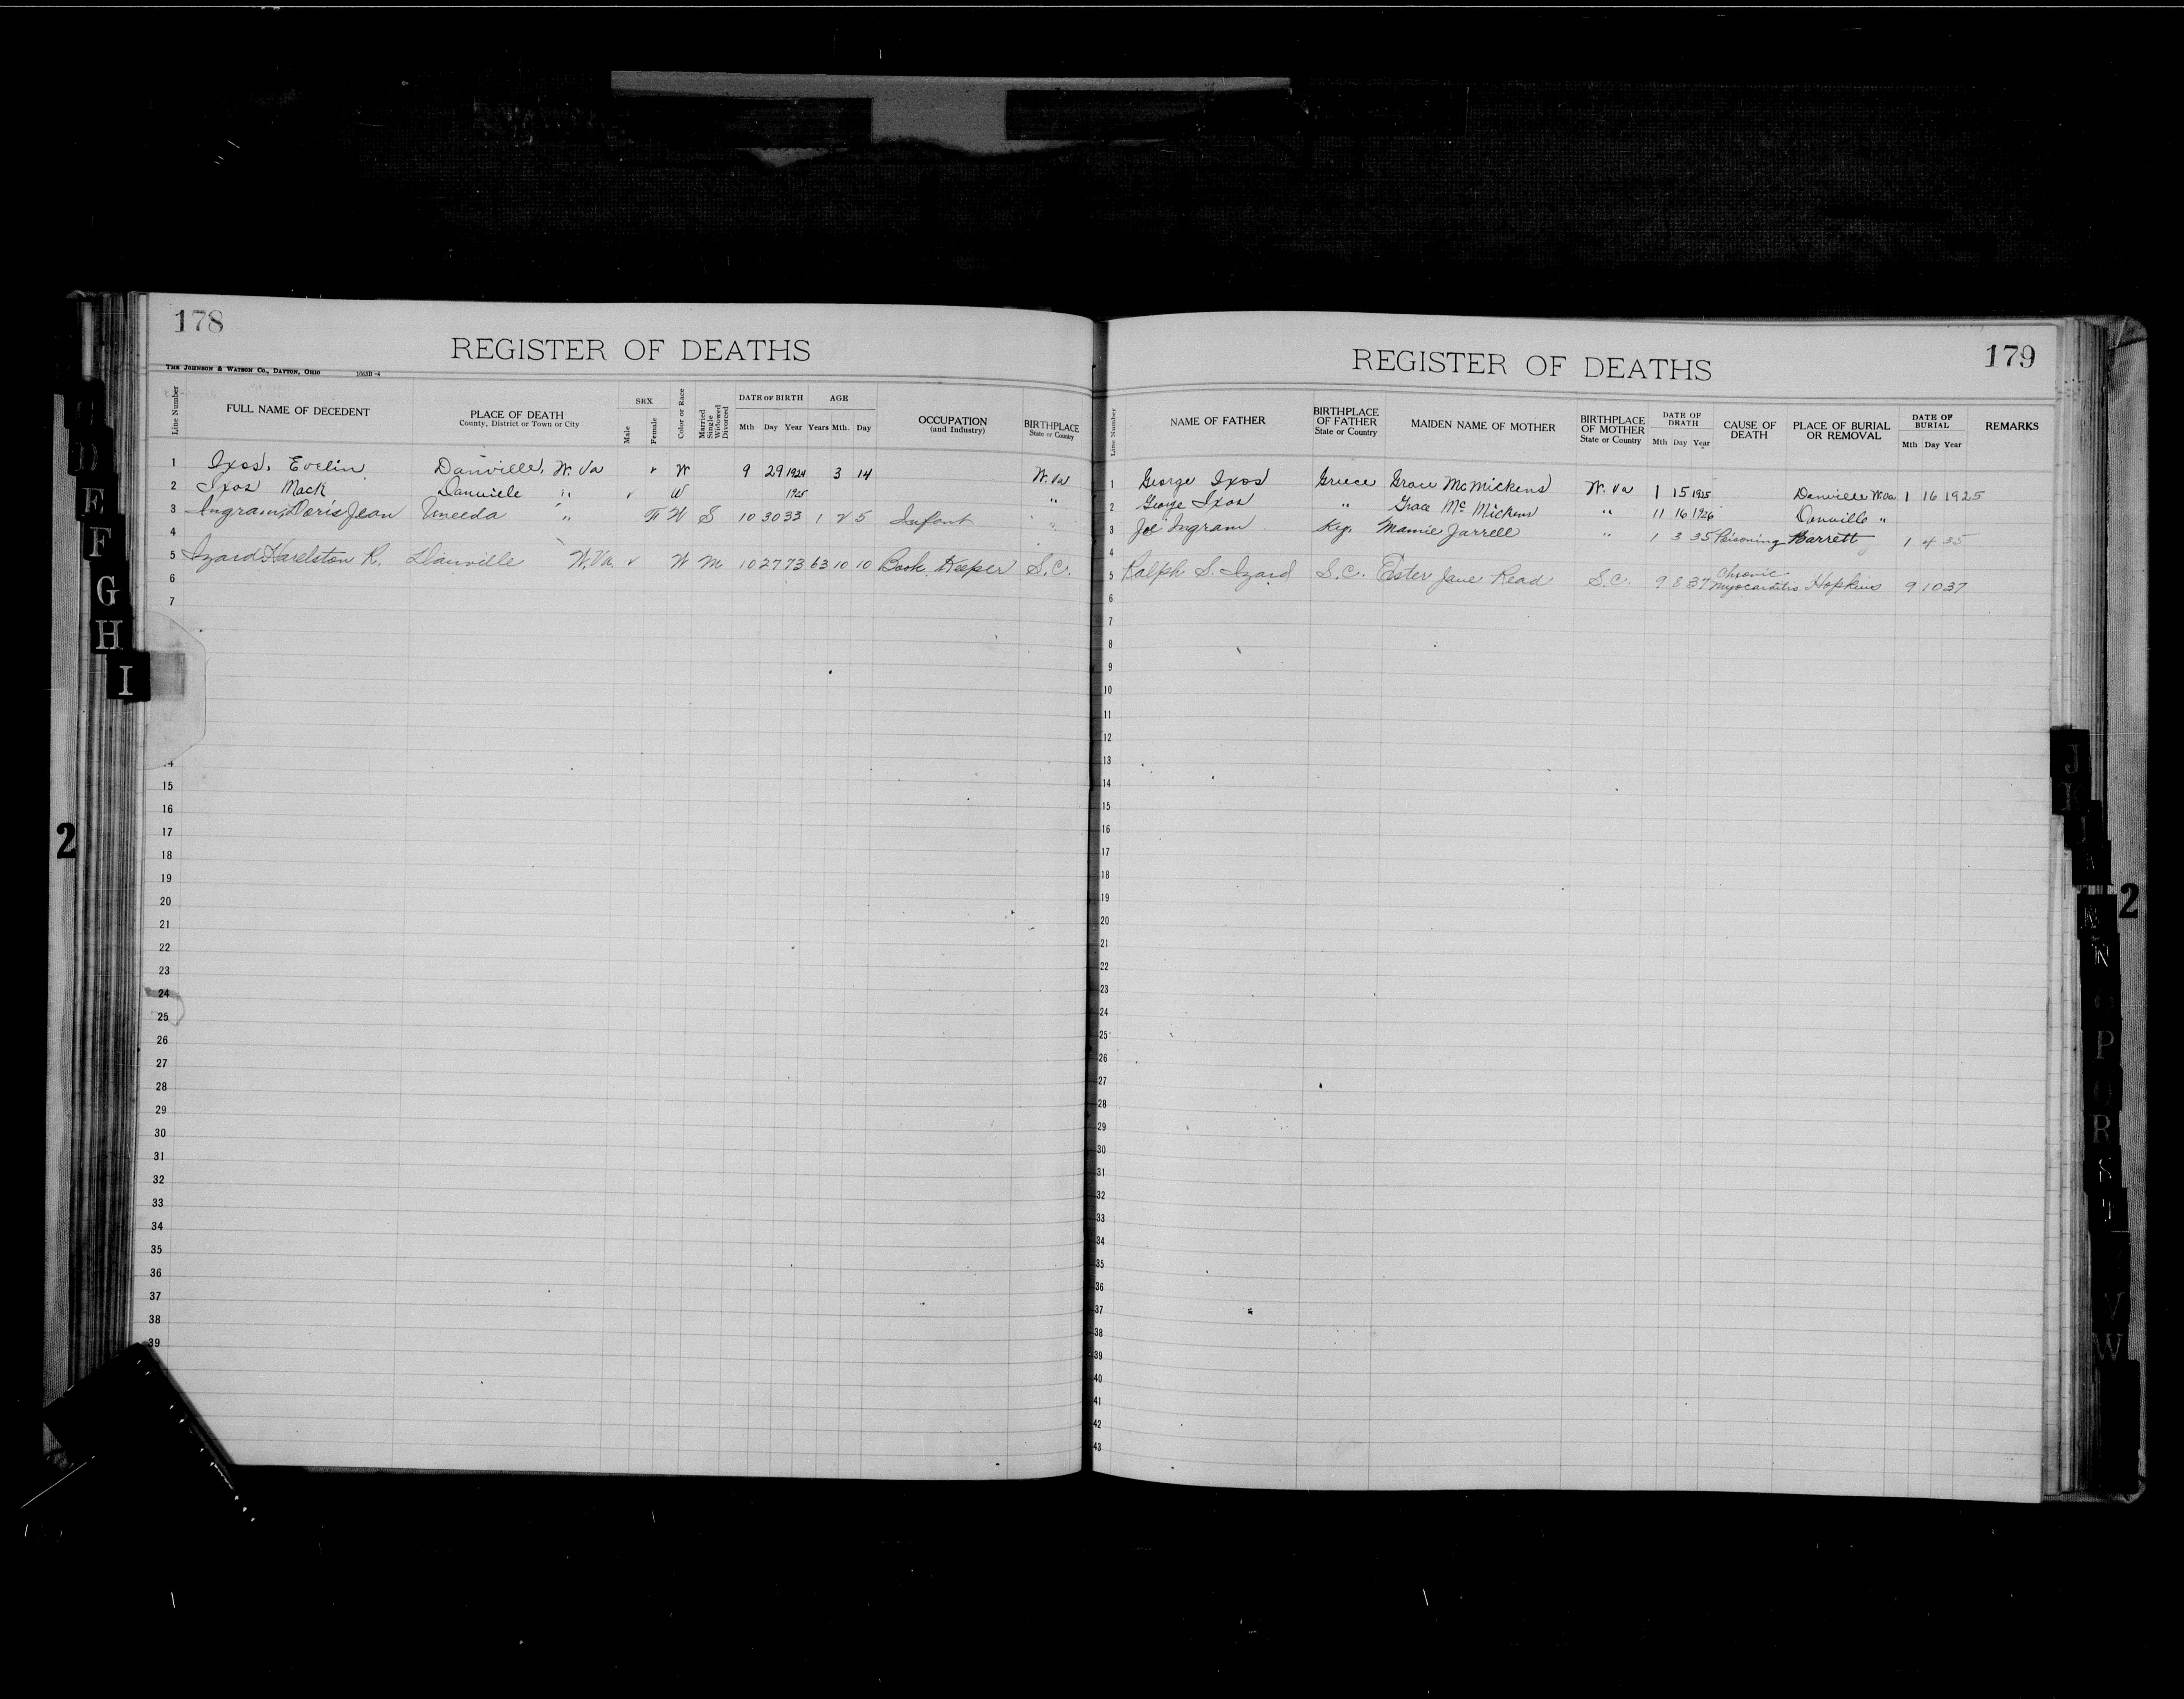 178
REGISTER OF DEATHS
THE JOHNSON & WATSON CO., DAYTON, OHIO 1063B-4
Line Number
FULL NAME OF DECEDENT
PLACE OF DEATH
County, District or Town or City
SEX
Male
Female
Color or Race
Married
Single
Widowed
Divorced
DATE OF BIRTH
Mth Day Year
AGE
Years Mth. Day
OCCUPATION
(and Industry)
BIRTHPLACE
State or Country
1 Ixos, Evelin Danville, W. Va ✓ W 9 29 1924 3 14 W. Va
2 Ixos Mack Danville " ✓ W 1925 "
3 Ingram, Doris Jean Uneeda " F W S 10 30 33 1 2 5 Infant "
4
5 Izard R. Danville W. Va. ✓ W M 10 27 73 63 10 10 Book Keeper S.C.
6
7
15
16
17
18
19
20
21
22
23
24
25
26
27
28
29
30
31
32
33
34
35
36
37
38
39
179
REGISTER OF DEATHS
Line Number
NAME OF FATHER
BIRTHPLACE
OF FATHER
State or Country
MAIDEN NAME OF MOTHER
BIRTHPLACE
OF MOTHER
State or Country
DATE OF
DRATH
Mth Day Year
CAUSE OF
DEATH
PLACE OF BURIAL
OR REMOVAL
DATE OF
BURIAL
Mth Day Year
REMARKS
1 George Ixos Greece Grace McMickens W. Va 1 15 1925 Danville W. Va 1 16 1925
2 George Ixos " Grace Mc Mickens " 11 16 1926 Danville "
3 Joe Ingram Ky. Mamie Jarrell " 1 3 35 Poisoning Barrett 1 4 35
4
5 Ralph S. Izard S.C. Ester Jane Read S.C. 9 8 37 Chronic Myocarditis Hopkins 9 10 37
6
7
8
9
10
11
12
13
14
15
16
17
18
19
20
21
22
23
24
25
26
27
28
29
30
31
32
33
34
35
36
37
38
39
40
41
42
43
E
F
G
H
I
2
J
2
P
R
V
W